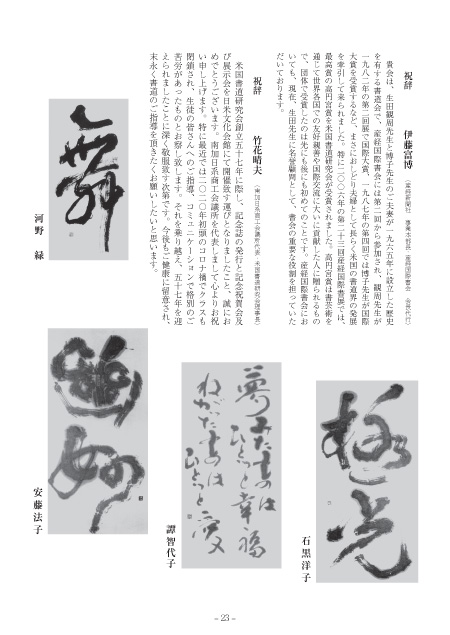 祝辞　伊藤富博
（産経新聞社　事業本部長・産経国際書会　会長代行）
貴会は、生田観周先生と博子先生のご夫妻が一九六五年に設立した歴史
を有する書道会で、産経国際書会には第二回から参加され、観周先生が
一九八二年の第二回展で国際大賞、一九八七年の第四回では博子先生が国際
大賞を受賞するなど、まさにおしどり夫婦として長らく米国の書道界の発展
を牽引して来られました。特に二〇〇六年の第二十三回産経国際書展では、
最高賞の高円宮賞を米国書道研究会が受賞されました。高円宮賞は書芸術を
通じて世界各国での友好親善や国際交流に大いに貢献した人に贈られるもの
で、団体で受賞したのは先にも後にも初めてのことです。産経国際書会にお
いても、現在、生田先生に名誉顧問として、書会の重要な役割を担っていた
だいております。
祝辞　竹花晴夫
（南加日系商工会議所代表・米国書道研究会理事長）
米国書道研究会創立五十七年に際し、記念誌の発行と記念祝賀会及
び展示会を日米文化会館にて開催致す運びとなりましたこと、誠にお
めでとうございます。南加日系商工会議所を代表しまして心よりお祝
い申し上げます。特に最近では二〇二〇年初頭のコロナ禍でクラスも
閉鎖され、生徒の皆さんへのご指導、コミュニケーションで格別のご
苦労があったものとお察し致します。それを乗り越え、五十七年を迎
えられましたことに深く敬服致す次第です。今後もご健康に留意され、
末永く書道のご指導を頂きたくお願いしたいと思います。
舞
河野　緑
極光
石黒洋子
夢みたものは
ひとつの幸福
ねがったものは
ひとつの愛
譚智代子
幽妙
安藤法子
- 23 -